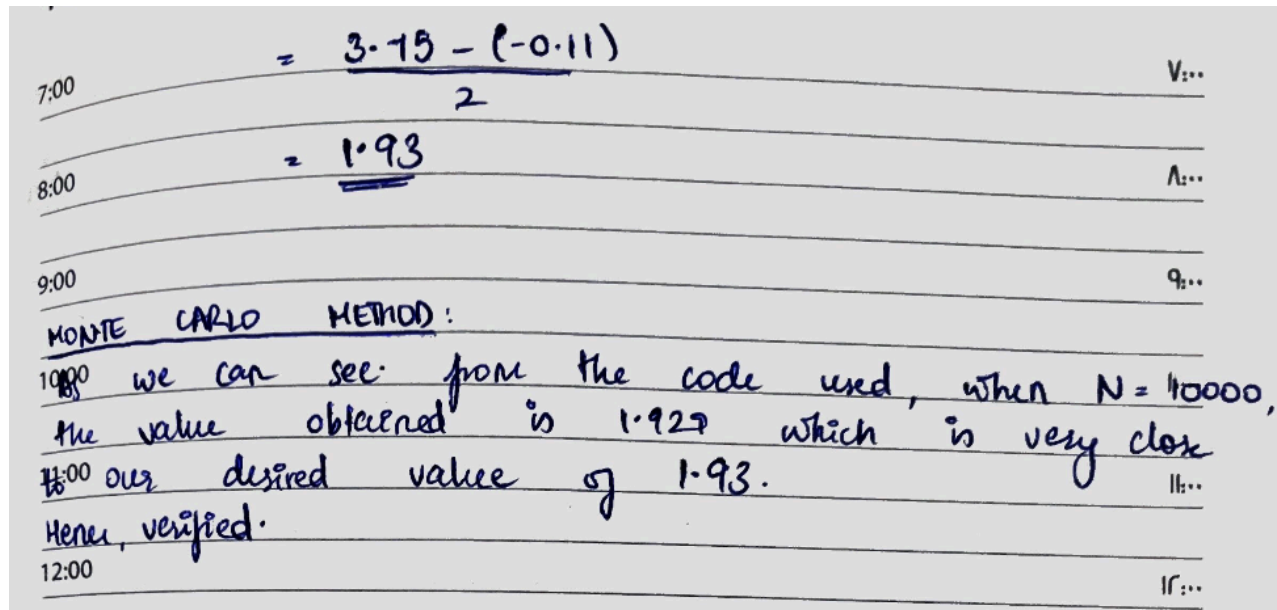 = 3.75 - (-0.11)
7:00 ٧:٠٠
2
= 1.93
8:00 ٨:٠٠
9:00 ٩:٠٠
MONTE CARLO METHOD:
10:00 As we can see from the code used, when N = 10000,
the value obtained is 1.927 which is very close
11:00 to our desired value of 1.93. ١١:٠٠
Hence, verified.
12:00 ١٢:٠٠